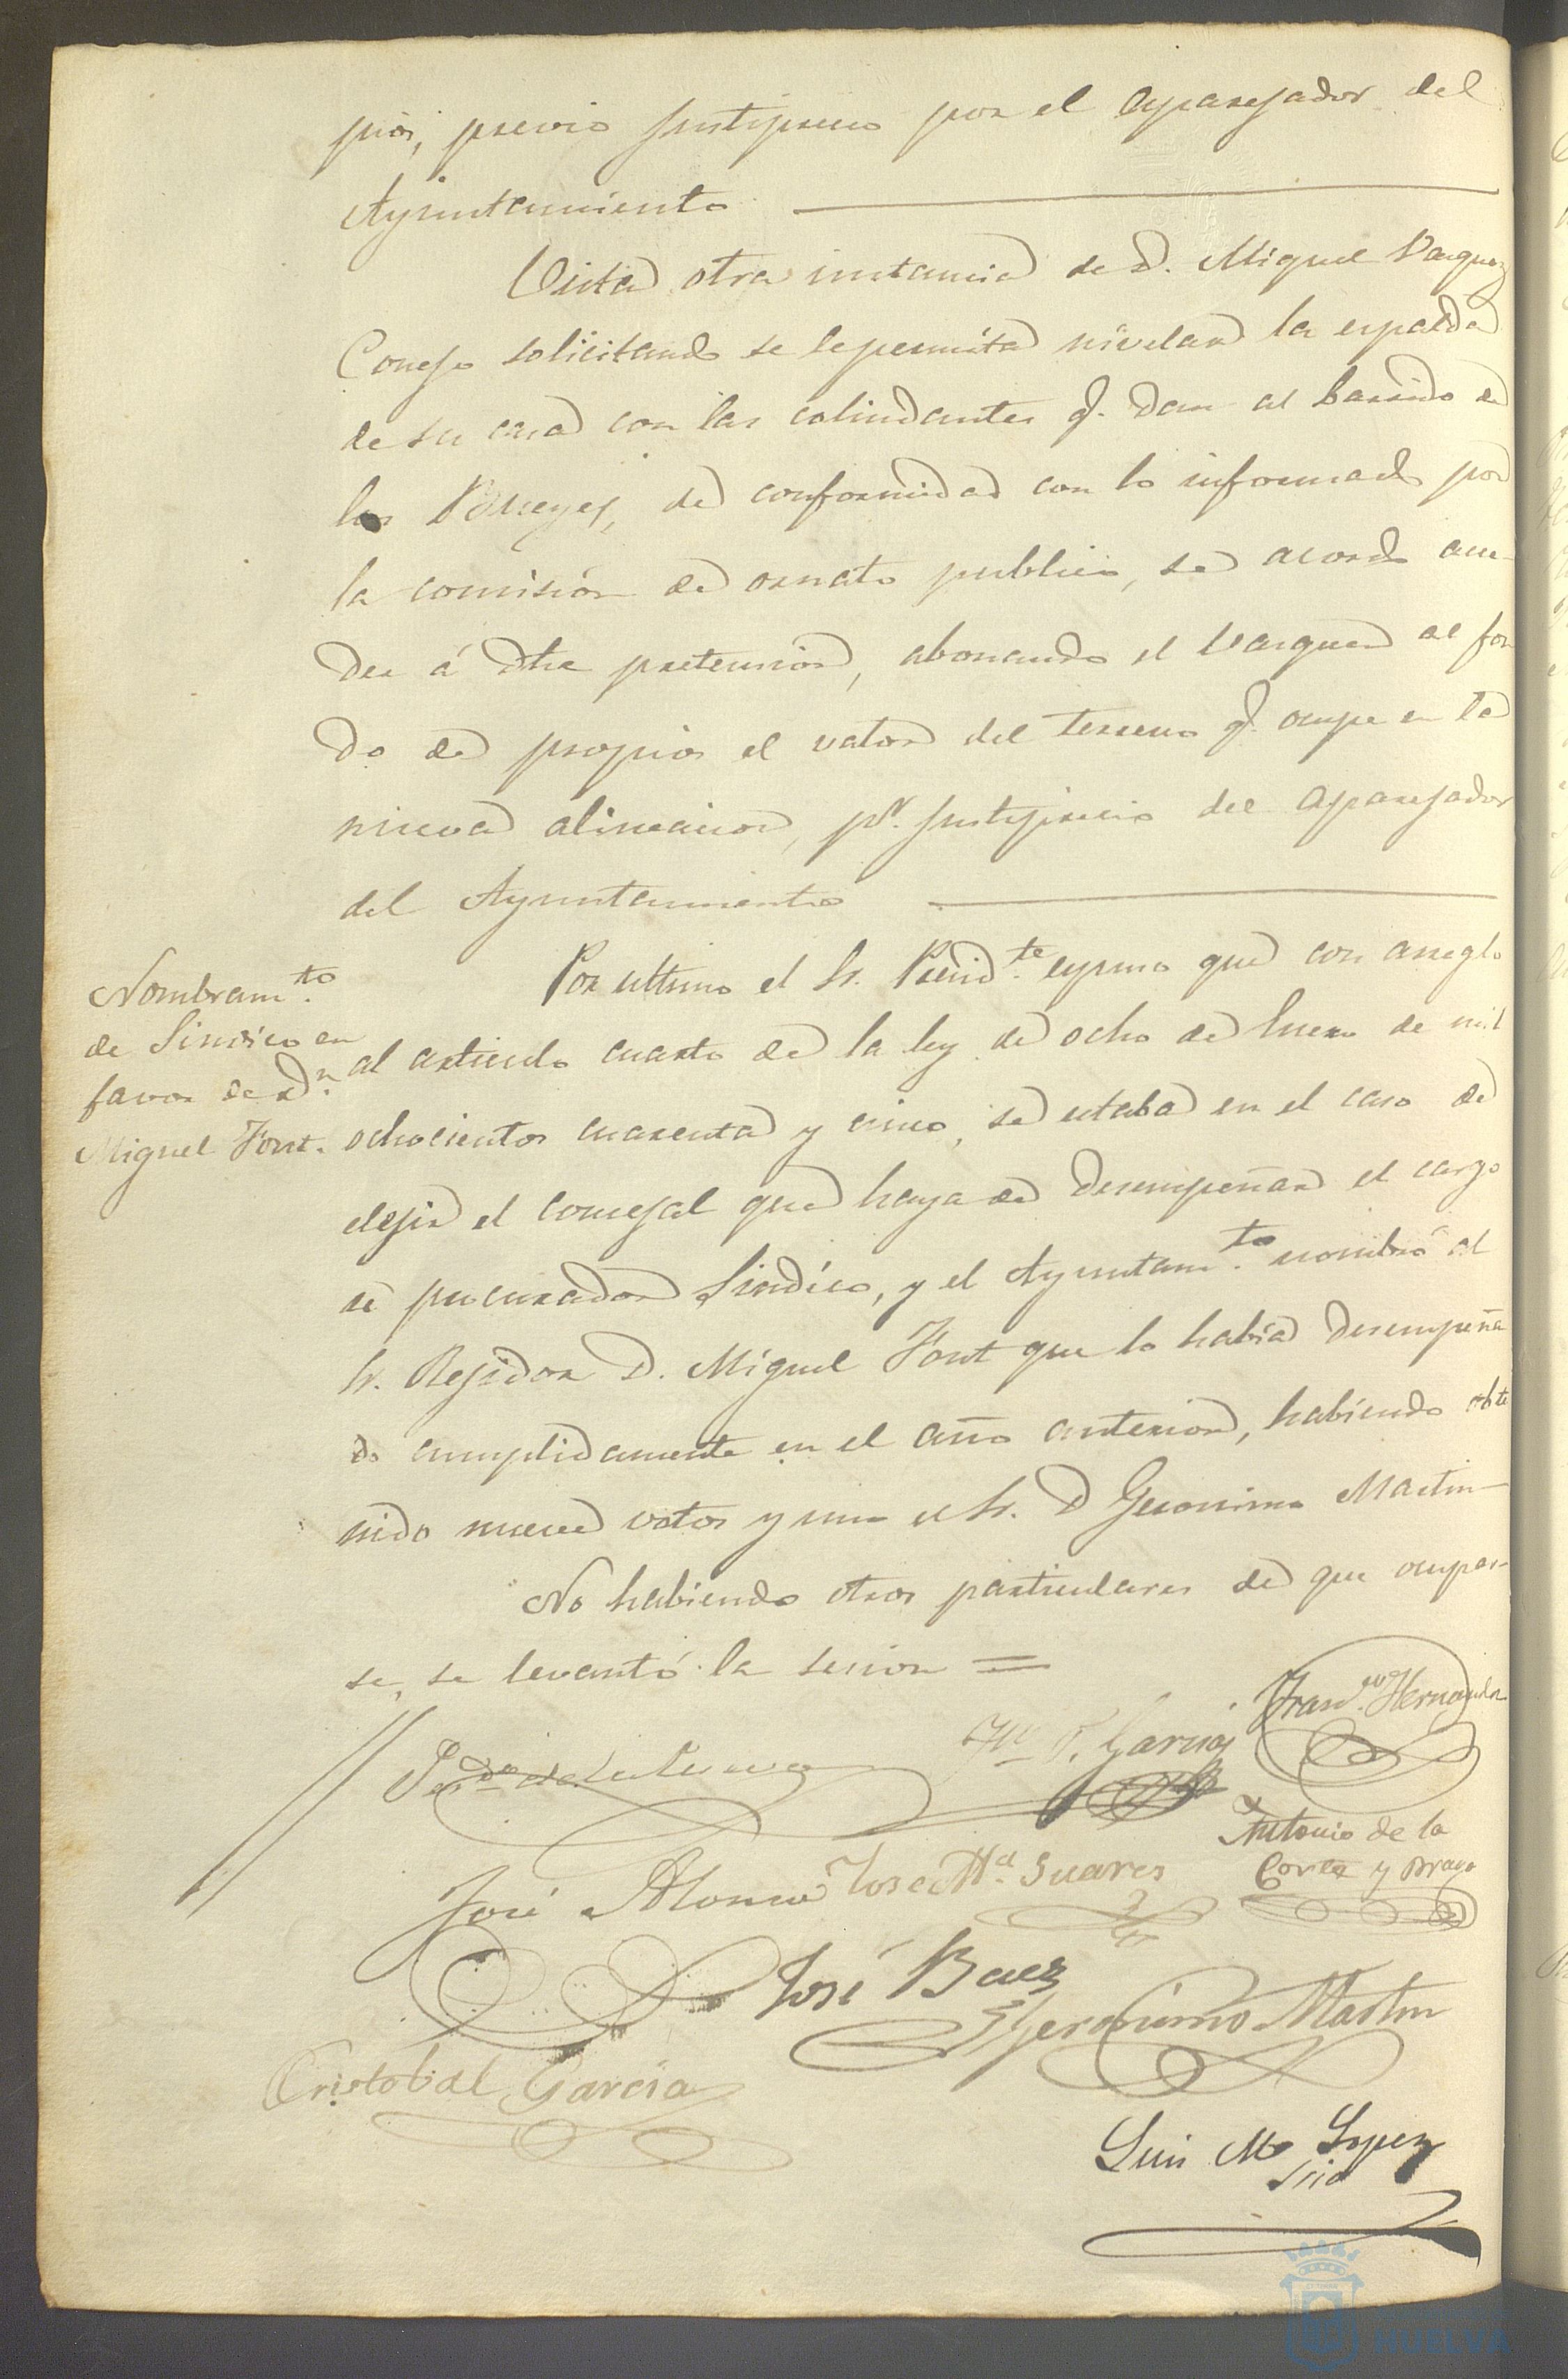 pios, previo justiprecio por el aparejador del
Ayuntamiento
Vista otra instancia de D. Miguel Vazquez
Conejo solicitando se le permita nivelar la espalda
de su casa con las colindantes q. dan al barrido de
los Bueyes, de conformidad con lo informado por
la comision de ornato publico, se acordo acce-
der á dha pretension, abonando el Vazquez al fon
do de propios el valor del terreno q. ocupe en la
nueva alineacion, pr. justiprecio del aparejador
del Ayuntamiento
Por ultimo el Sr. Presid.te espuso que con arreglo
al articulo cuarto de la ley de ocho de Enero de mil
ochocientos cuarenta y cinco, se estaba en el caso de
elejir el concejal que haya de desempeñar el cargo
de procurador Sindico, y el Ayuntam.to nombró al
Sr. Rejidor D. Miguel Font que lo habia desempeña
do cumplidamente en el año anterior, habiendo obte
nido nueve votos y uno el Sr. D Geronimo Martin
No habiendo otros particulares de que ocupar-
se, se levantó la sesion =
Nombram.to
de Sindico en
favor de Dn.
Miguel Font.
Franco. Hernandez
F. Garcia
Antonio de la
Corte y Bravo
José Alonso
Jose Ma. Suares
José Baez
Geronimo Martin
Cristobal Garcia
Luis Ma Lopez
Srio
HUELVA